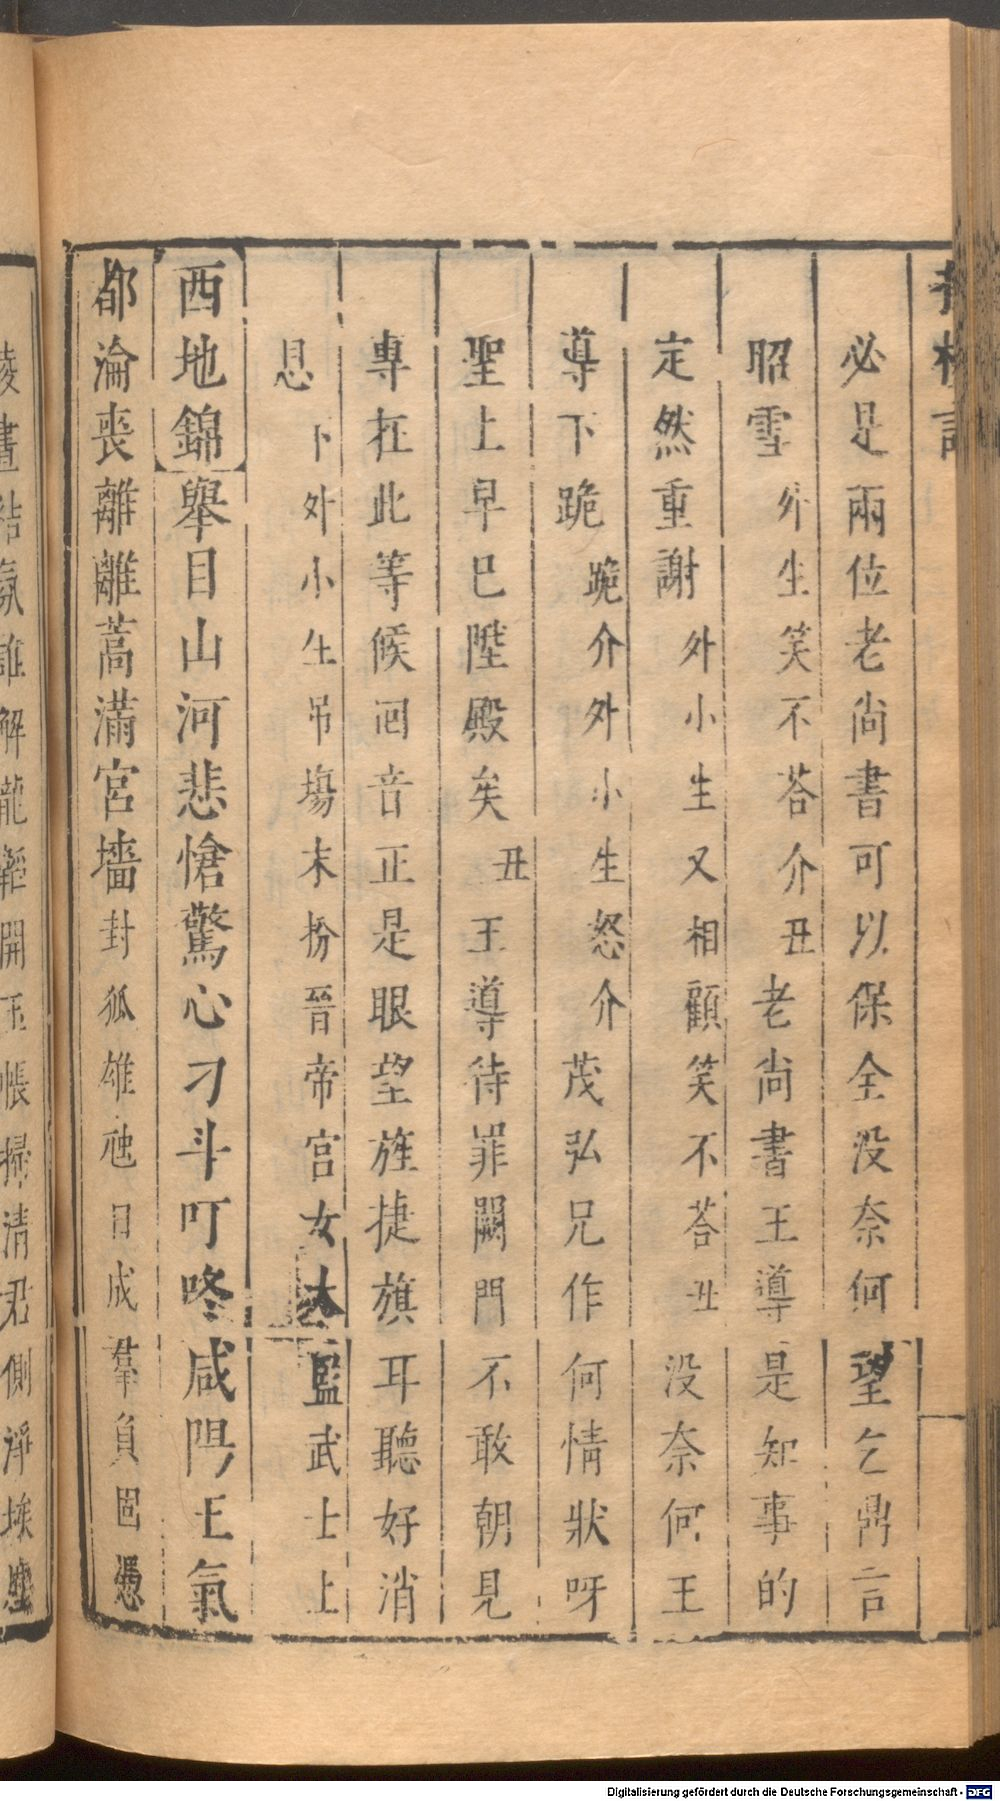 必是兩位老尚書可以保全没奈何望乞鼎言
昭雪外生笑不荅介丑老尚書王導是知事的
定然重謝外小生又相顧笑不荅丑没奈何王
導下跪跪介外小生怒介茂弘兄作何情狀呀
聖上早巳陞殿矣丑王導待罪闕門不敢朝見
專在此等候囘音正是眼望旌捷旗耳聽好消
息下外小生吊塲末扮晉帝宮女太監武士上
西地錦舉目山河悲愴驚心刁斗叮咚咸陽王氣
都淪喪離離蒿滿宮墻封狐雄虺日成羣負固憑
陵晝結氛誰解龍韜開玉帳掃清君側淨埃塵
Digitalisierung gefördert durch die Deutsche Forschungsgemeinschaft - DFG